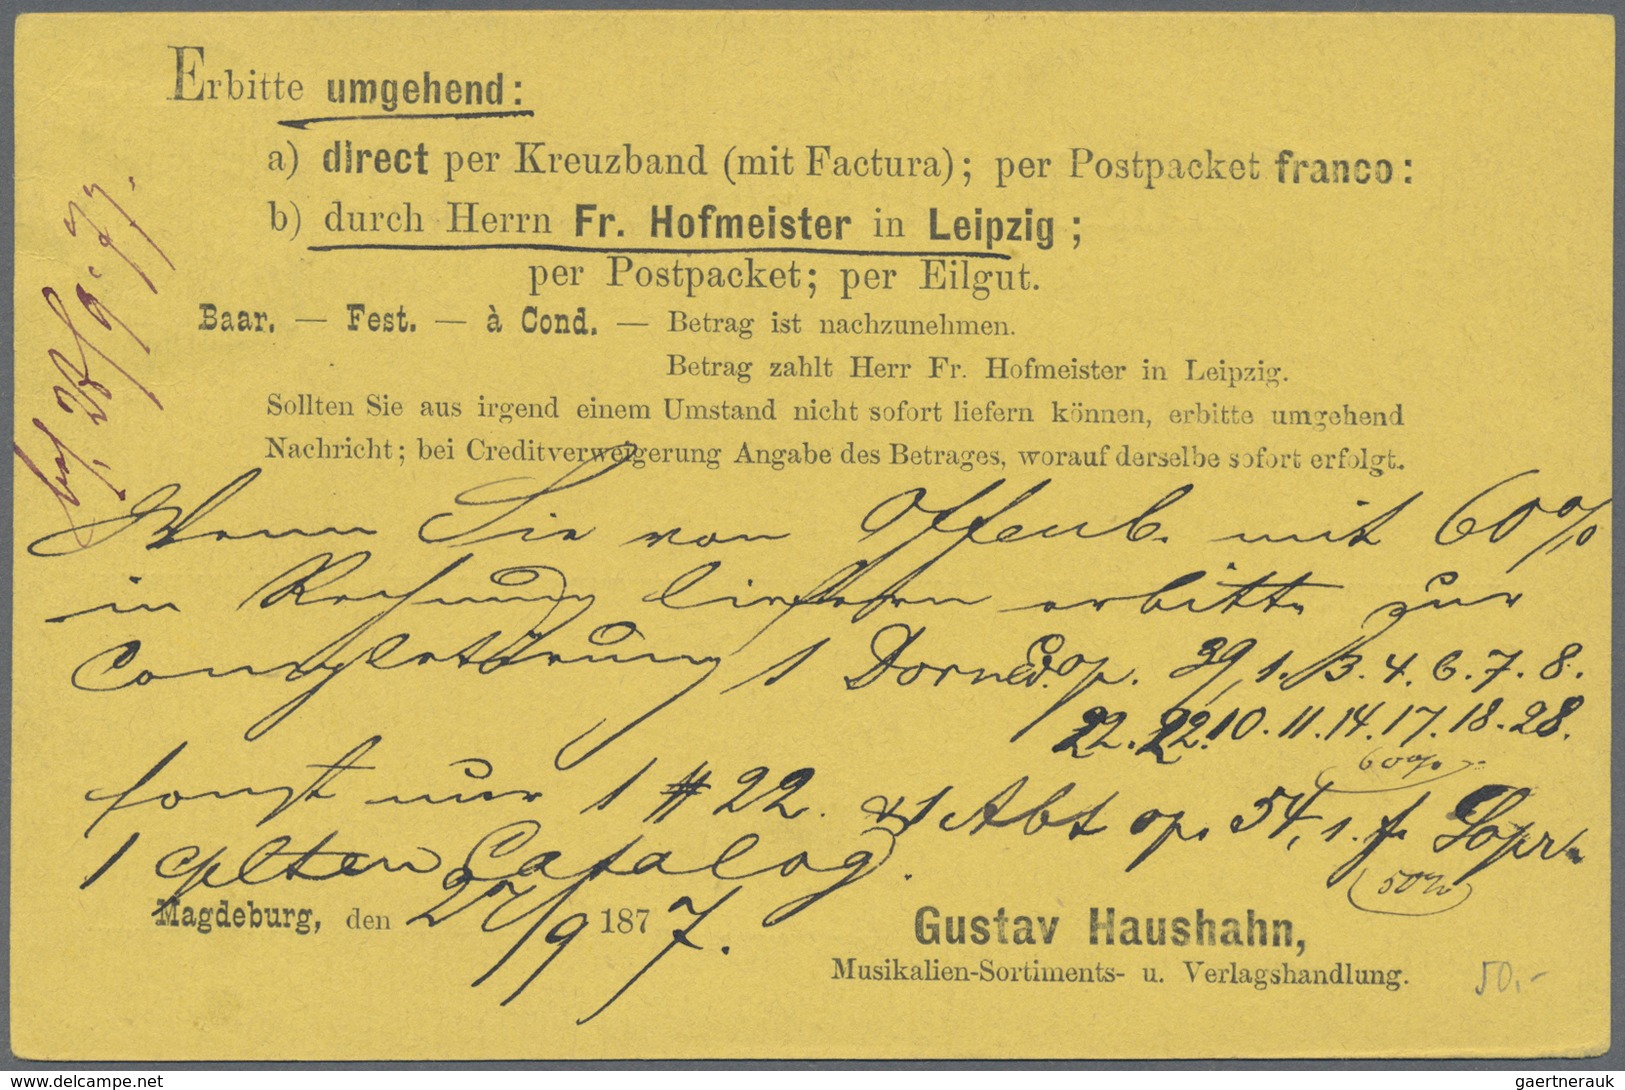 Erbitte umgehend:
a) direct per Kreuzband (mit Factura); per Postpacket franco:
b) durch Herrn Fr. Hofmeister in Leipzig;
per Postpacket; per Eilgut.
Baar. — Fest. — à Cond. — Betrag ist nachzunehmen.
Betrag zahlt Herr Fr. Hofmeister in Leipzig.
Sollten Sie aus irgend einem Umstand nicht sofort liefern können, erbitte umgehend
Nachricht; bei Creditverweigerung Angabe des Betrages, worauf derselbe sofort erfolgt.
28/9. 77.
Wenn Sie von Offenb. mit 60%
in Rechnung liefern erbitte zur
Completirung 1 Dorn Ed. op. 39, 1. 3. 4. 6. 7. 8.
22. 22. 10. 11. 14. 17. 18. 28.
60%
sonst nur 1 # 22. & 1 Abt op. 54, 1. f. Sopr.
1 cplten Catalog.
50%
Magdeburg, den 27/9 1877.
Gustav Haushahn,
Musikalien-Sortiments- u. Verlagshandlung.
50.-
www.delcampe.net
gaertnerauk